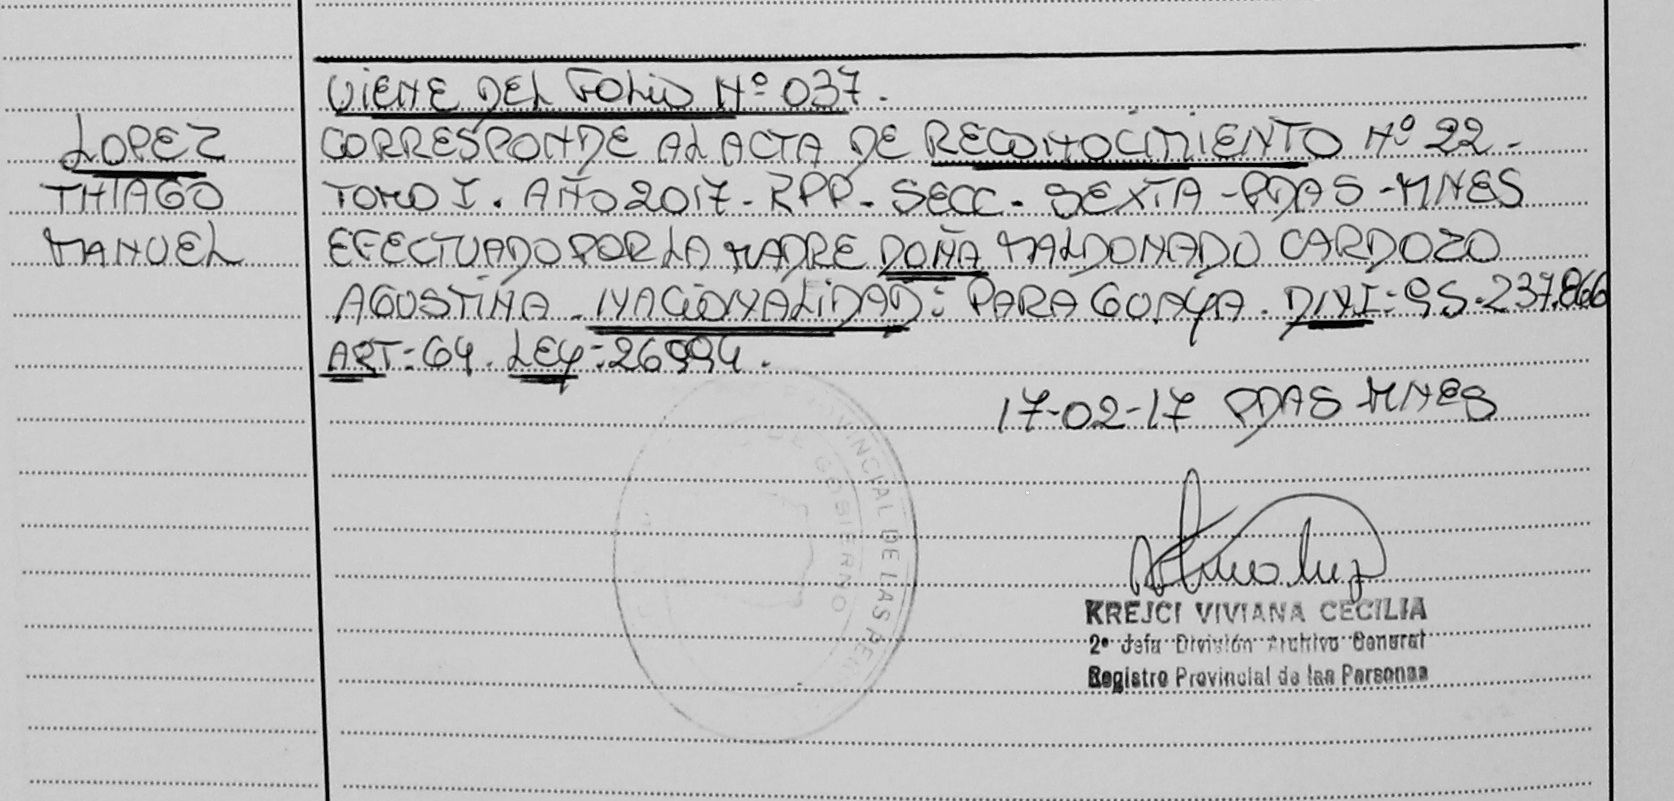 VIENE DEL FOLIO Nº 037.
LOPEZ
THIAGO
MANUEL
CORRESPONDE AL ACTA DE RECONOCIMIENTO Nº 22-
TOMO I. AÑO 2017- RPP- SECC- SEXTA -PDAS -MNES
EFECTUADO POR LA MADRE DOÑA MALDONADO CARDOZO
AGOSTINA - NACIONALIDAD: PARAGUAYA. DNI: 95-237.866
ART: 64. LEY: 26994.
17-02-17 PDAS -MNES
PROVINCIAL DE LAS PER
DE GOBIERNO
KREJCI VIVIANA CECILIA
2º Jefa División Archivo General
Registro Provincial de las Personas